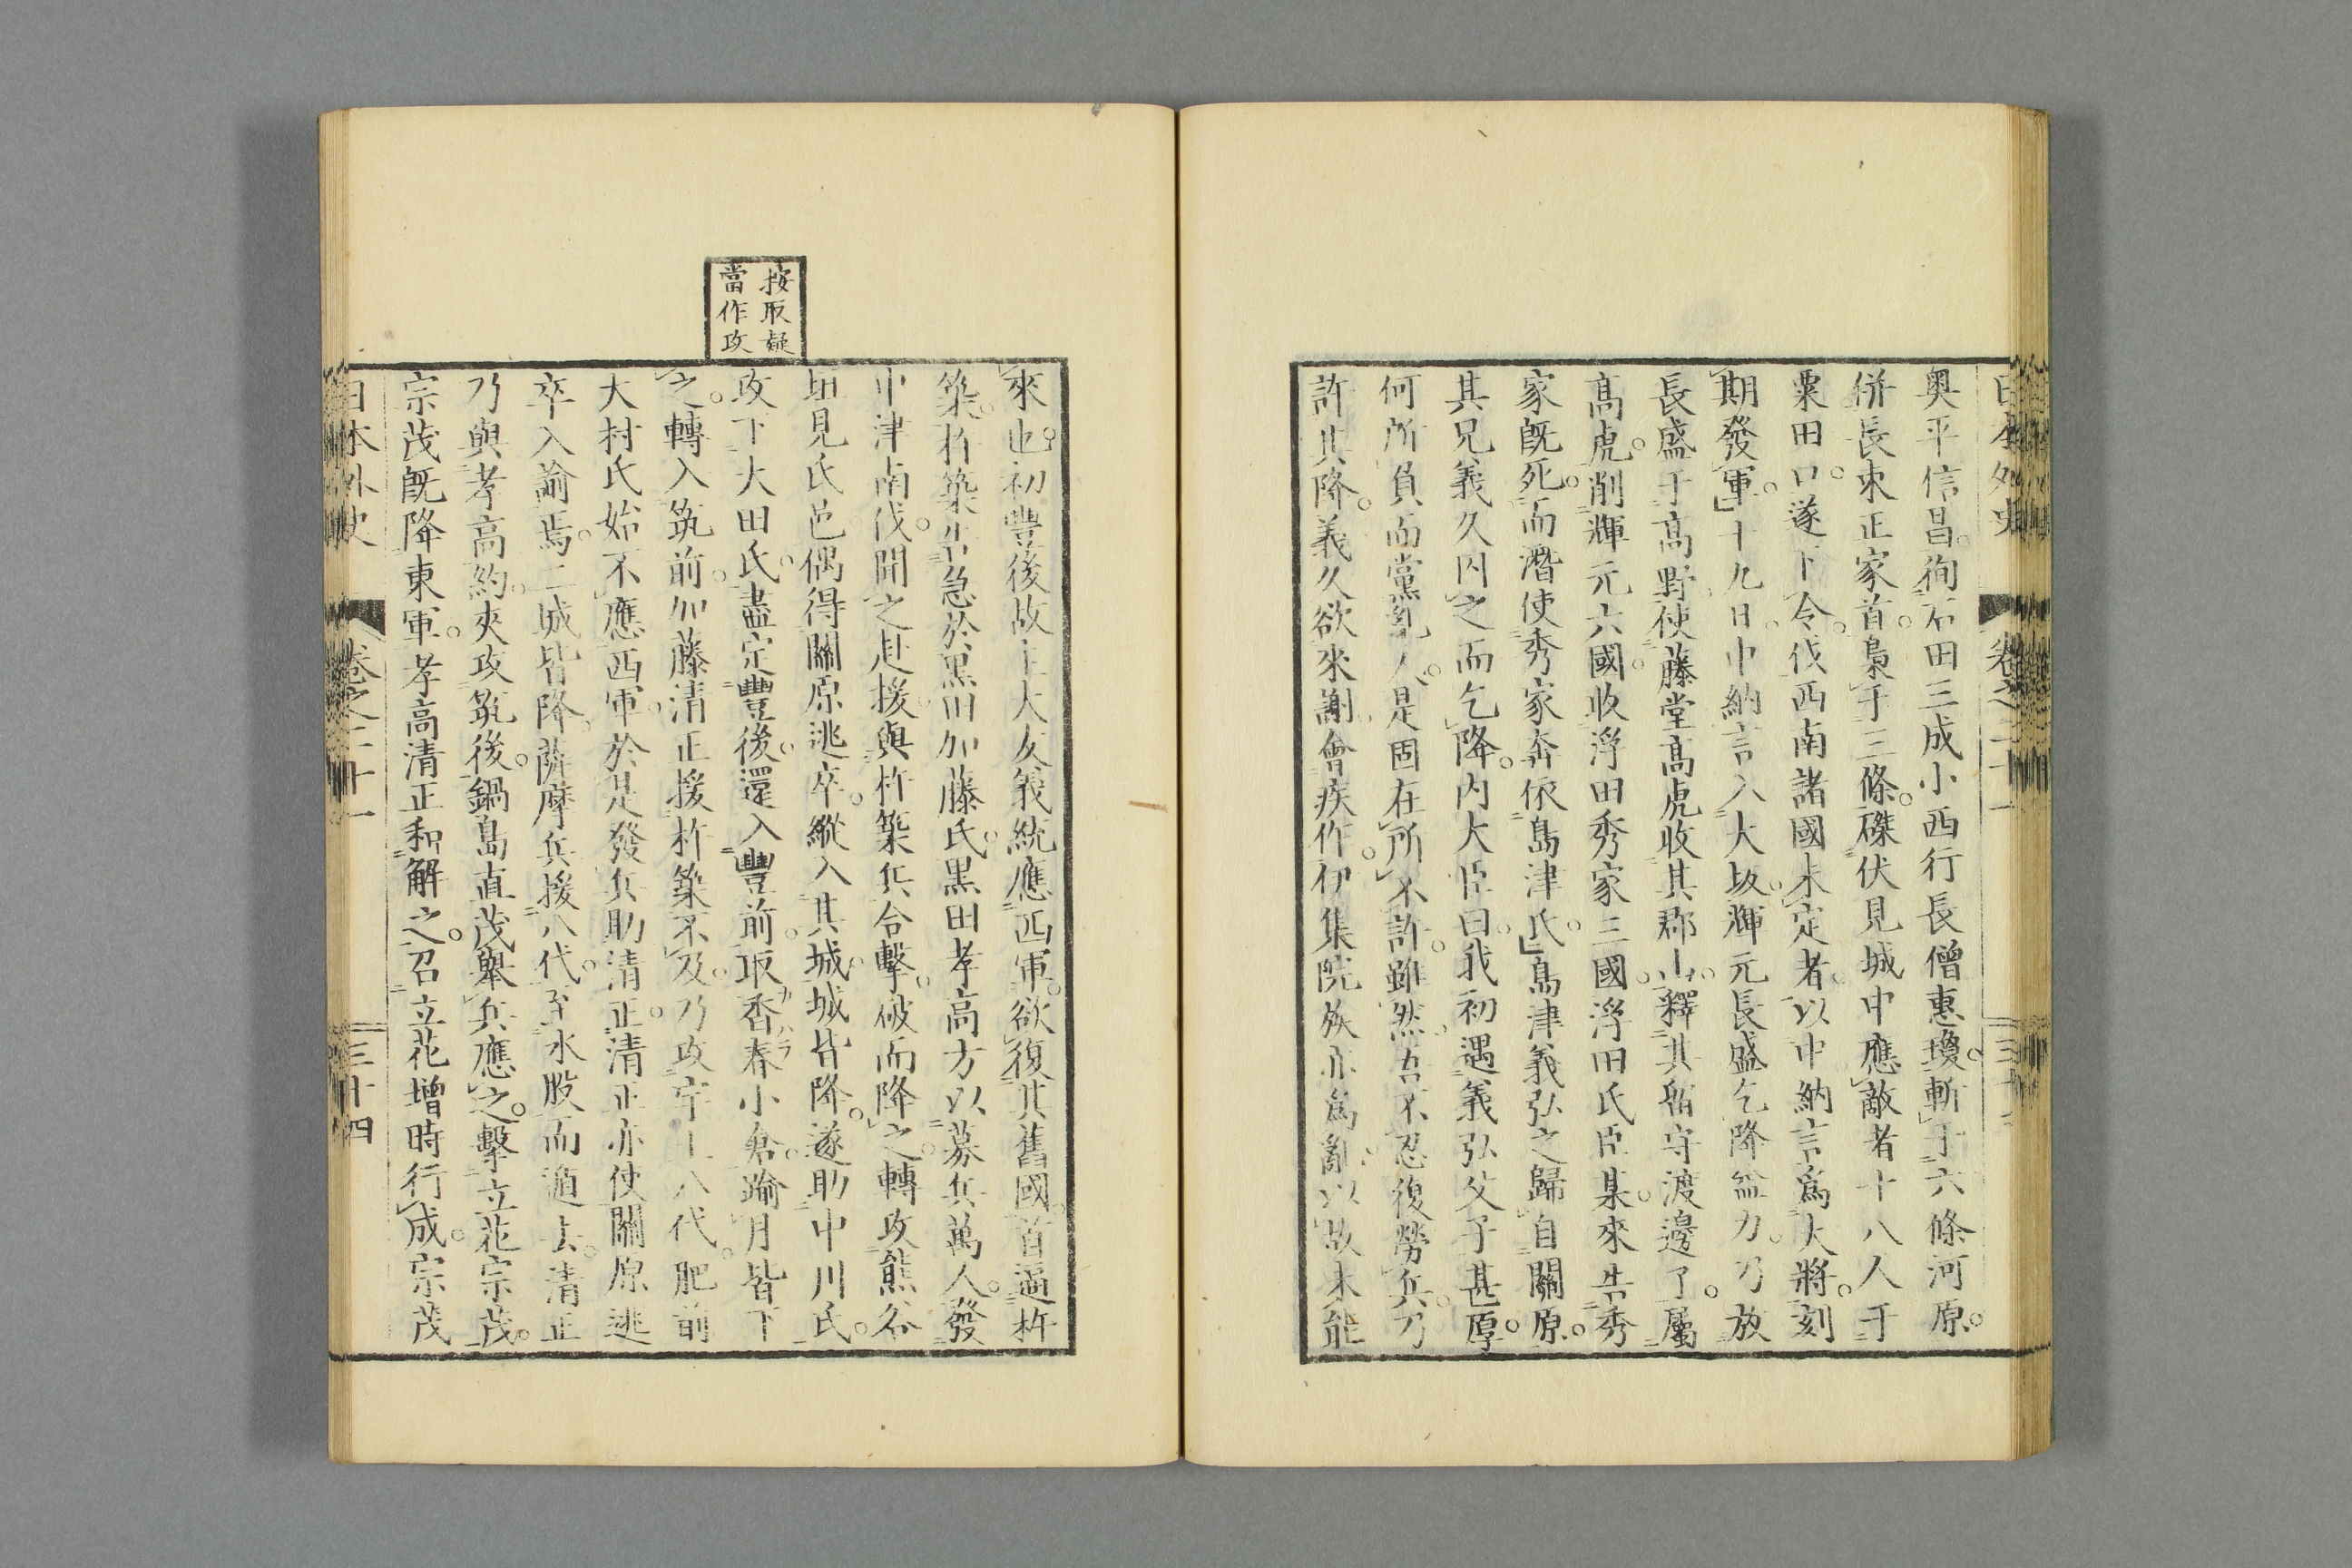 日本外史 卷之二十一
奧平信昌。徇石田三成小西行長僧惠瓊。斬于六條河原。
併長束正家首。梟于三條。磔伏見城中應敵者十八人于
粟田口。遂下令。伐西南諸國未定者。以中納言爲大將。刻
期發軍。十九日。中納言入大坂。輝元長盛乞降益力。乃放
長盛于高野。使藤堂高虎收其郡山。釋其留守渡邊了。屬
高虎。削輝元六國。收浮田秀家三國。浮田氏臣某。來告秀
家既死。而潛使秀家奔依島津氏。島津義弘之歸自關原。
其兄義久囚之而乞降。内大臣曰。我初遇義弘父子甚厚。
何所負而黨亂人。是固在所不許。雖然。吾不忍復勞兵。乃
許其降。義久欲來謝。會疾作。伊集院族亦爲亂。以故未能
來也。初豐後故主大友義統應西軍。欲復其舊國。首逼杵
築。杵築告急於黑田加藤氏。黑田孝高方以募兵萬人。發
中津南伐。聞之赴援。與杵築兵合擊。破而降之。轉攻熊谷
垣見氏邑。偶得關原逃卒。縱入其城。城皆降。遂助中川氏。
攻下大田氏。盡定豐後。還入豐前。取香春小倉。踰月皆下
之。轉入筑前。加藤清正援杵築不及。乃攻宇土八代。肥前
大村氏始不應西軍。於是發兵助清正。清正亦使關原逃
卒入諭焉。二城皆降。薩摩兵援八代。至水股而遁去。清正
乃與孝高約。夾攻筑後。鍋島直茂舉兵應之。擊立花宗茂。
宗茂既降東軍。孝高清正和解之。召立花增時行成。宗茂
按取疑
當作攻
カハラ
日本外史 卷之二十一 三十四